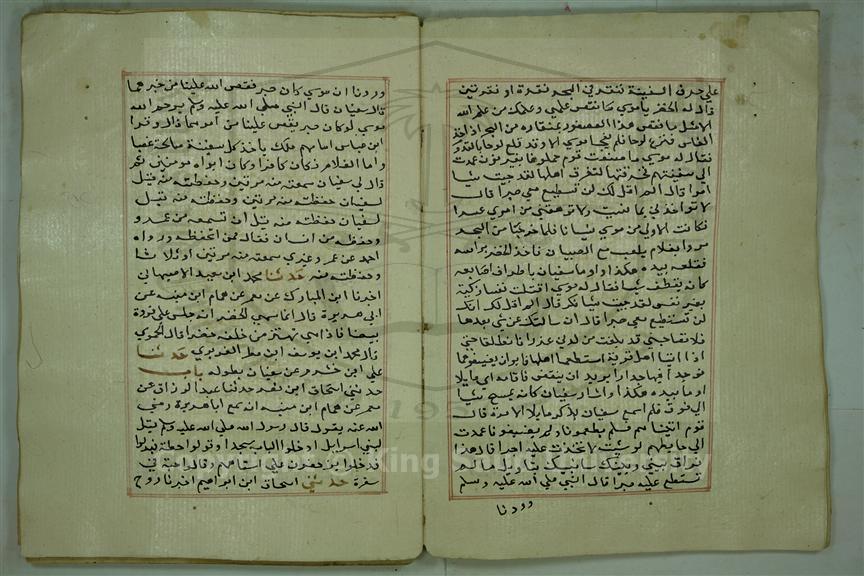 علي حرف السفينة فنقر في البحر نقرة او نقرتين
قال له الخضر يا موسي ما نقص علمي وعلمك من علم الله
الا مثل ما نقص هذا العصفور بمنقاره من البحر اذ اخذ
الفاس فنزع لوحا فلم يفجا موسي الا وقد قلع لوحا بالقدوم
فقال له موسي ما صنعت قوم حملونا بغير نول عمدت
الي سفينتهم فخرقتها لتغرق اهلها لقد جيت شيا
امرا قال الم اقل لك لن تستطيع معي صبرا قال
لا تواخذني بما نسيت ولا ترهقني من امري عسرا
فكانت الاولي من موسي نسيانا فلما خرجا من البحر
مروا بغلام يلعب مع الصبيان فاخذ الخضر براسه
فقلعه بيده هكذا واوما سفيان باطراف اصابعه
كانه يقطف شيا فقال له موسي اقتلت نفسا زكية
بغير نفس لقد جيت شيا نكرا قال الم اقل لك انك
لن تستطيع معي صبرا قال ان سالتك عن شي بعدها
فلا تصاحبني قد بلغت من لدني عذرا فانطلقا حتي
اذا اتيا اهل قرية استطعما اهلها فابوا ان يضيفوهما
فوجدا فيها جدارا يريد ان ينقض فاقامه اي مايلا
اوما بيده هكذا واشار سفيان كانه يمسح شيا
الي فوق فلم اسمع سفيان يذكر مايلا الا مرة قال
قوم اتيناهم فلم يطعمونا ولم يضيفونا عمدت
الي حايطهم لو شيت لاتخذت عليه اجرا قال هذا
فراق بيني وبينك سانبيك بتاويل ما لم
تستطع عليه صبرا قال النبي صلي الله عليه وسلم
وددنا
وددنا ان موسي كان صبر فقص الله علينا من خبرهما
قال سفيان قال النبي صلي الله عليه وسلم يرحم الله
موسي لو كان صبر يقص علينا من امرهما قال وقرا
ابن عباس امامهم ملك ياخذ كل سفينة صالحة غصبا
واما الغلام فكان كافرا وكان ابواه مومنين ثم
قال لي سفيان سمعته منه مرتين وحفظته منه قيل
لسفيان حفظته منه مرتين وحفظته منه قيل
لسفيان حفظته منه قبل ان تسمعه من عمرو
وحفظه من انسان فقال ممن اتحفظه ورواه
احد عن عمرو غيري سمعته منه مرتين او ثلاثا
وحفظته منه حدثنا محمد ابن سعيد الاصبهاني
اخبرنا ابن المبارك عن معمر عن همام ابن منبه عن
ابي هريرة قال انما سمي الخضر انه جلس علي فروة
بيضا فاذا هي تهتز من خلفه خضرا قال الحموي
قال محمد ابن يوسف ابن مطر الفربري حدثنا
علي ابن خشرم عن سفيان بطوله باب
حدثني اسحاق ابن نصر حدثنا عبد الرزاق عن
معمر عن همام ابن منبه انه سمع ابا هريرة رضي
الله عنه يقول قال رسول الله صلي الله عليه وسلم قيل
لبني اسرايل ادخلوا الباب سجدا وقولوا حطة فبدلوا
فدخلوا يزحفون علي استاههم وقالوا حبة في
شعرة حدثني اسحاق ابن ابراهيم اخبرنا روح